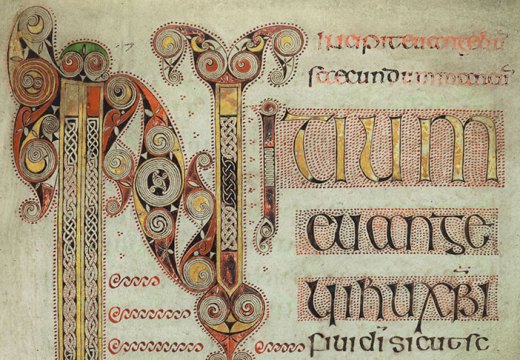 Incipit euangelii
secundum marcum
INITIUM
euange
lii ihu xpi
filii di sicut sc